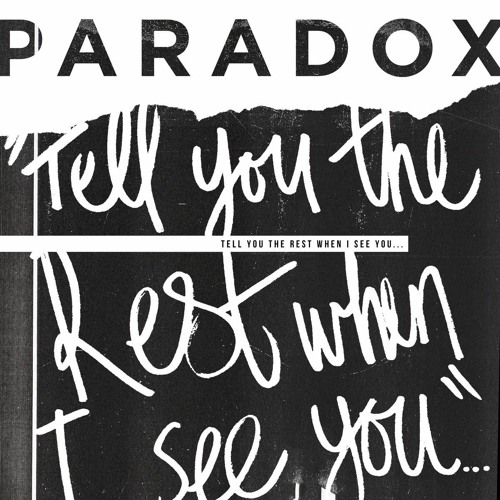 PARADOX
"Tell you the
TELL YOU THE REST WHEN I SEE YOU...
Rest when
I see you"...